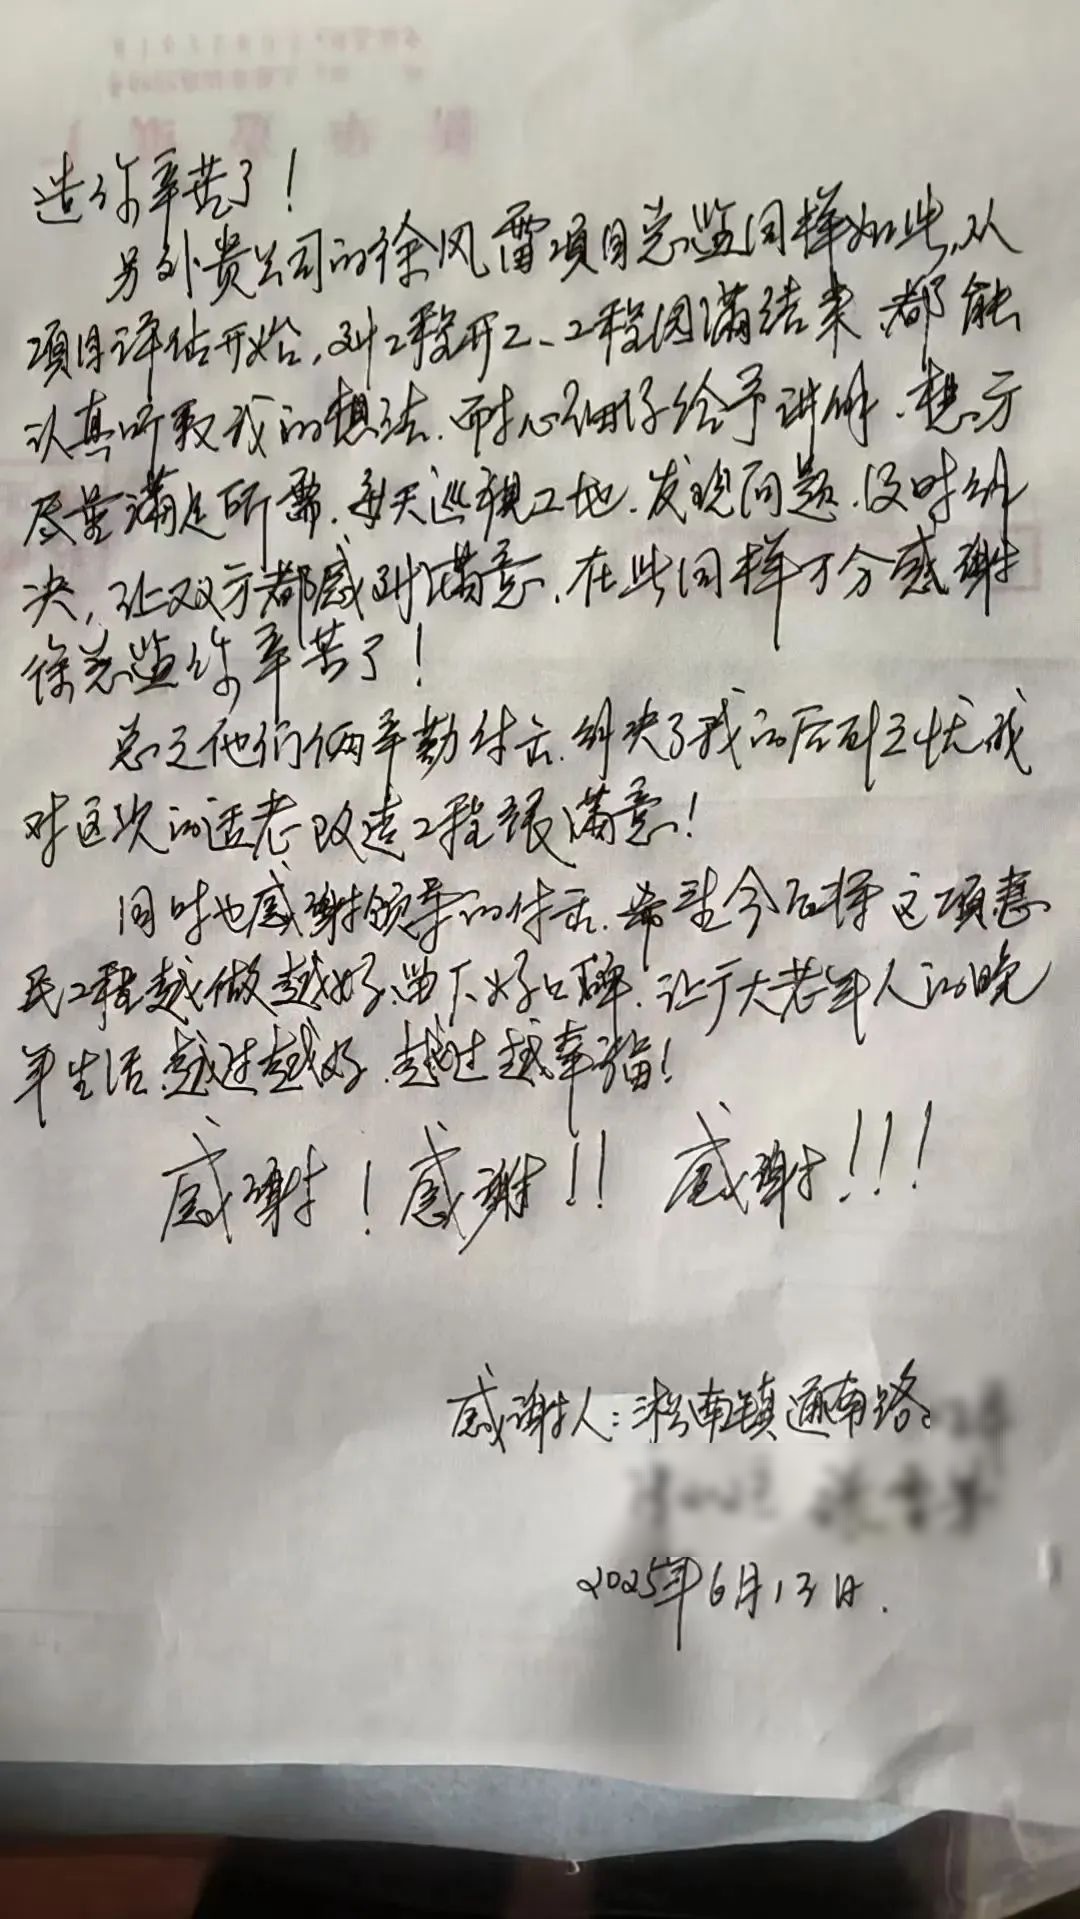 道你辛苦了！
另外贵公司的徐风雷项目总监同样如此，从
项目评估开始，到工程开工、工程圆满结束，都能
认真听取我的想法，耐心细仔给予讲解，想方
尽量满足所需，每天巡视工地，发现问题，及时解
决，让双方都感到满意，在此同样万分感谢
徐总监你辛苦了！
总之他们俩辛勤付出，解决了我的后顾之忧，我
对这次的适老改造工程很满意！
同时也感谢领导的付出，希望今后将这项惠
民工程越做越好，留下好口碑，让广大老年人的晚
年生活，越过越好，越过越幸福！
感谢！感谢！！ 感谢！！！
感谢人：淞南镇通南路
2025年6月13日.